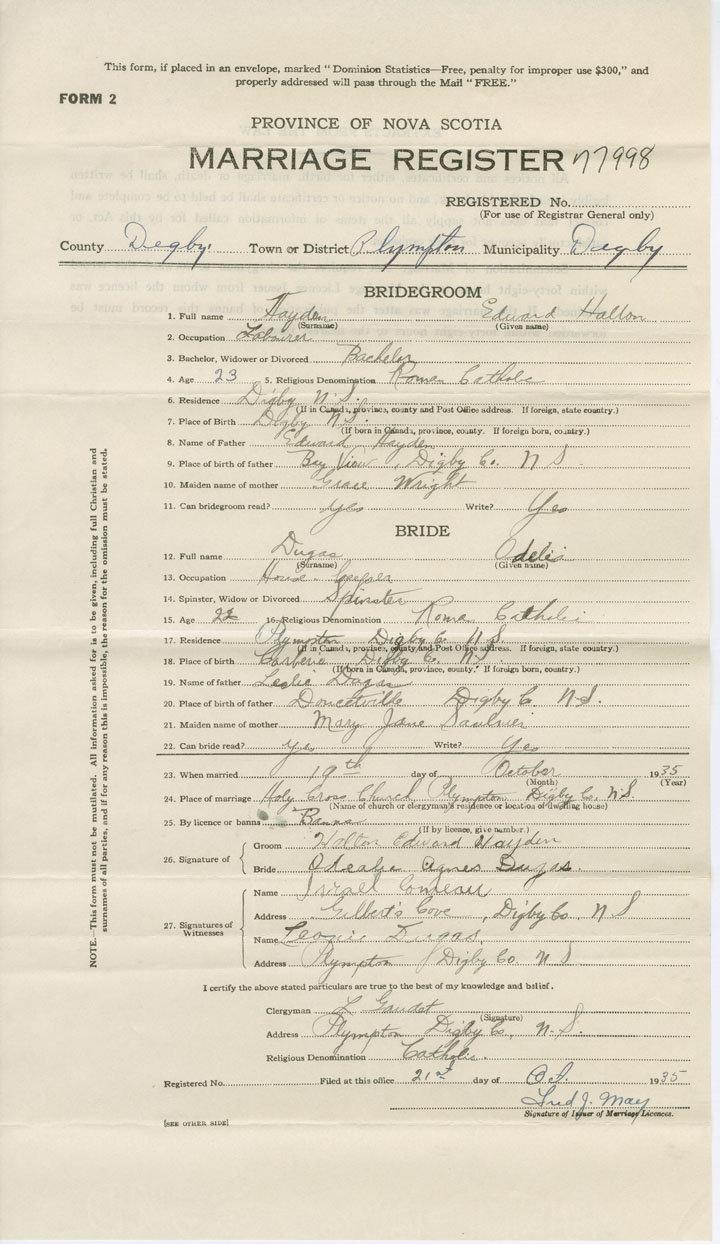 This form, if placed in an envelope, marked "Dominion Statistics—Free, penalty for improper use $300," and
properly addressed will pass through the Mail "FREE."
FORM 2
PROVINCE OF NOVA SCOTIA
MARRIAGE REGISTER 77998
REGISTERED No.
(For use of Registrar General only)
County Digby Town or District Plympton Municipality Digby
BRIDEGROOM
1. Full name Hayden Edward Halton
(Surname) (Given name)
2. Occupation Labourer
3. Bachelor, Widower or Divorced Bachelor
4. Age 23 5. Religious Denomination Roman Catholic
6. Residence Digby N.S.
(If in Canada, province, county and Post Office address. If foreign, state country.)
7. Place of Birth Digby N.S.
(If born in Canada, province, county. If foreign born, country.)
8. Name of Father Edward Hayden
9. Place of birth of father Bay View, Digby Co. N S.
10. Maiden name of mother Grace Wright
11. Can bridegroom read? yes Write? Yes
BRIDE
12. Full name Dugas Odelia
(Surname) (Given name)
13. Occupation House-keeper
14. Spinster, Widow or Divorced Spinster
15. Age 16. Religious Denomination Roma Catholic
17. Residence Plympton Digby Co. N.S.
(If in Canada, province, county and Post Office address. If foreign, state country.)
18. Place of birth Corberie Digby Co. N.S.
(If born in Canada, province, county. If foreign born, country.)
19. Name of father Leslie Dugas
20. Place of birth of father Doucetville Digby Co N.S.
21. Maiden name of mother Mary Jane Saulnier
22. Can bride read? Yes Write? Yes
23. When married 19th day of October 1935
(Month) (Year)
24. Place of marriage Holy Cross Church Plympton Digby Co. N.S.
(Name of church or clergyman's residence or location of dwelling house)
25. By licence or banns Banns
(If by licence, give number.)
26. Signature of
Groom Halton Edward Hayden
Bride Agnes Dugas.
27. Signatures of Witnesses
Name Israel Comeau
Address Gilbert's Cove, Digby Co, N S
Name Leonie Dugas,
Address Plympton Digby Co. N S
I certify the above stated particulars are true to the best of my knowledge and belief.
Clergyman L Gaudet
(Signature)
Address Plympton Digby Co, N.S.
Religious Denomination Catholic.
Registered No. Filed at this office 21st day of Oct. 1935
Fred J. May
Signature of Issuer of Marriage Licences.
[SEE OTHER SIDE]
NOTE.—This form must not be mutilated. All information asked for is to be given, including full Christian and
surnames of all parties, and if for any reason this is impossible, the reason for the omission must be stated.